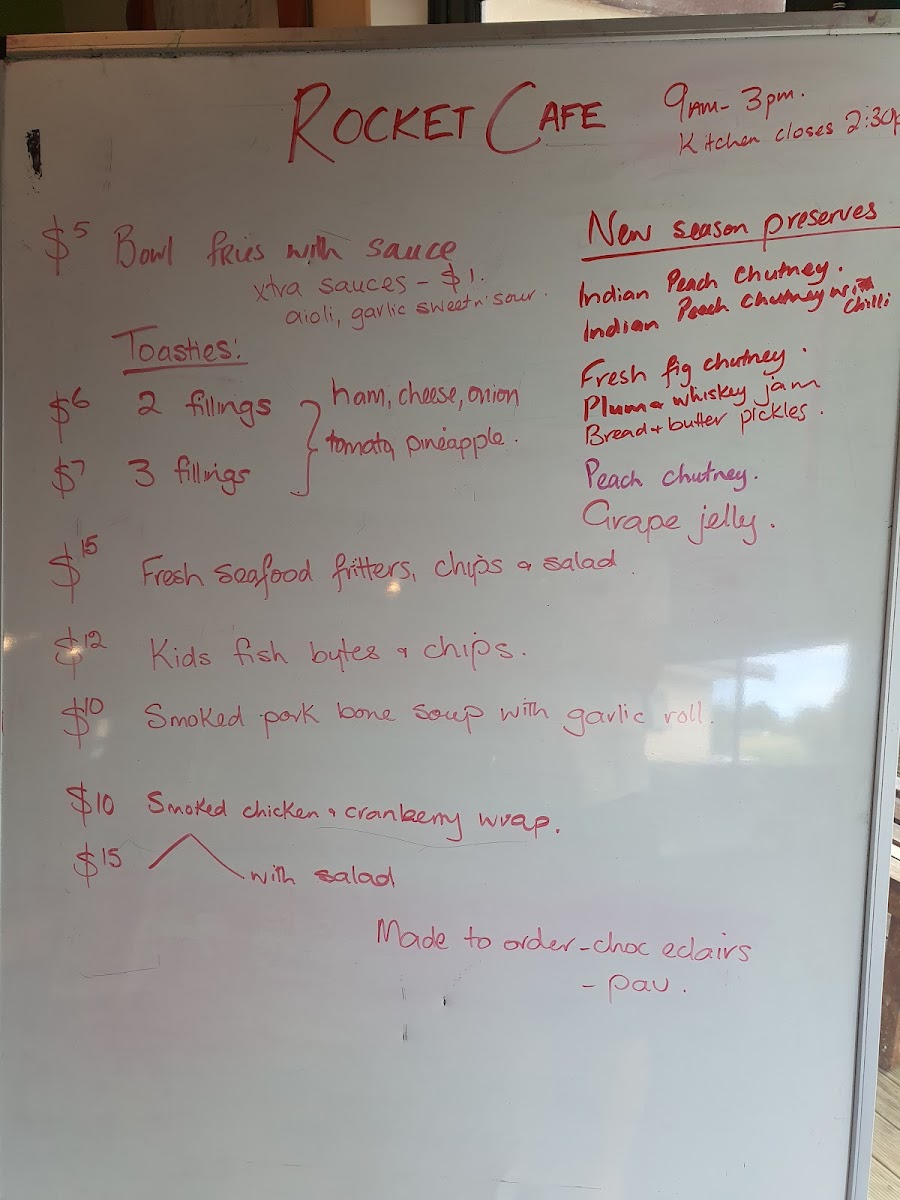 ROCKET CAFE
9AM - 3pm.
Kitchen closes 2:30p
$5 Bowl fries with sauce
xtra sauces - $1.
aioli, garlic sweet n' sour.
Toasties:
$6 2 fillings
$7 3 fillings
ham, cheese, onion
tomato, pineapple.
$15 Fresh seafood fritters, chips & salad.
$12 Kids fish bytes & chips.
$10 Smoked pork bone soup with garlic roll.
$10 Smoked chicken & cranberry wrap.
$15 with salad
Made to order - choc eclairs
- pav.
New season preserves
Indian Peach Chutney.
Indian Peach Chutney with
Chilli
Fresh fig chutney.
Plum & whiskey jam
Bread + butter pickles.
Peach chutney.
Grape jelly.